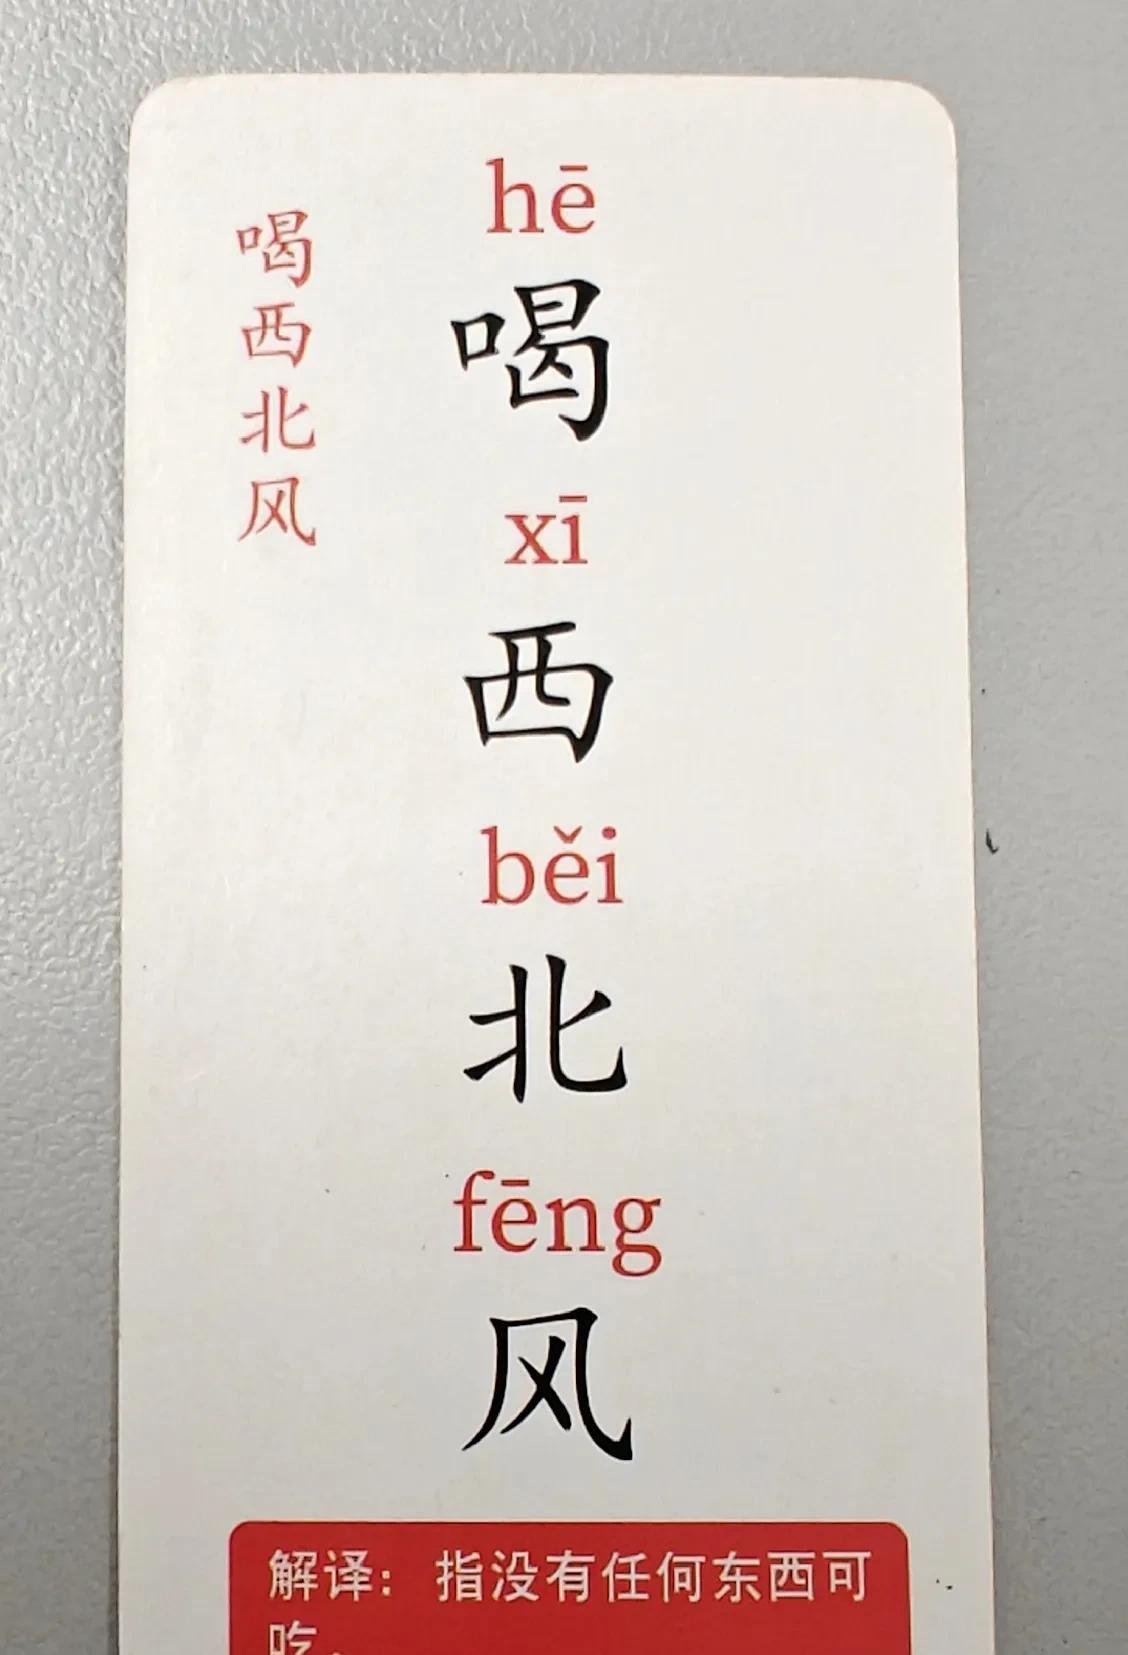 喝西北风
hē
喝
xī
西
běi
北
fēng
风
解译：指没有任何东西可
吃。